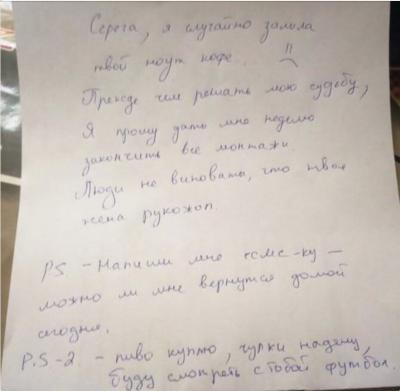 Серега, я случайно залила
твой ноут кофе.
Прежде чем решать мою судьбу,
Я прошу дать мне неделю
закончить все монтажи.
Люди не виноваты, что твоя
жена рукожоп.
PS - Напиши мне смс-ку -
можно ли мне вернутся домой
сегодня.
P.S-2 - пиво куплю, чулки надену,
буду смотреть с тобой футбол.